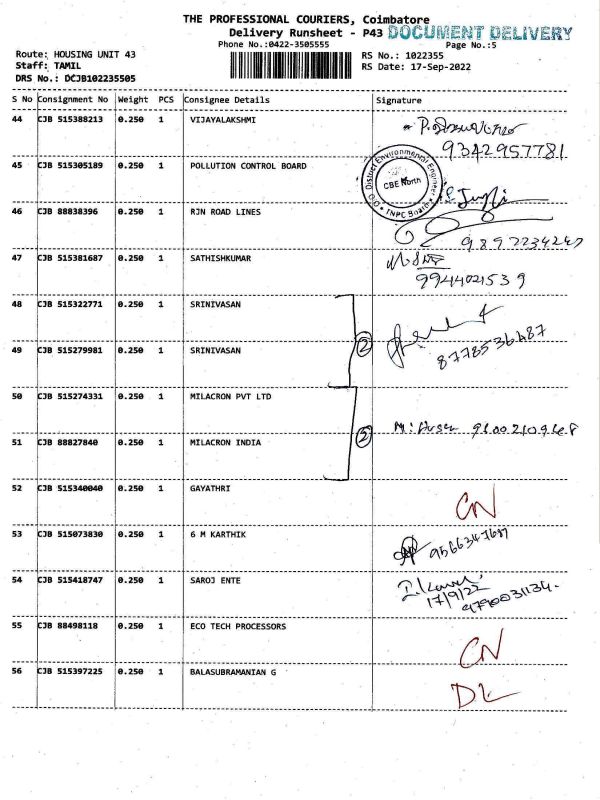 THE PROFESSIONAL COURIERS, Coimbatore
Delivery Runsheet - P43 DOCUMENT DELIVERY
Phone No.:0422-3505555 Page No.:5
Route: HOUSING UNIT 43 RS No.: 1022355
Staff: TAMIL RS Date: 17-Sep-2022
DRS No.: DCJB102235505
S No Consignment No Weight PCS Consignee Details Signature
44 CJB 515388213 0.250 1 VIJAYALAKSHMI
9342957781
45 CJB 515305189 0.250 1 POLLUTION CONTROL BOARD
O/O District Environmental Engineer
CBE North
TNPC Board
46 CJB 88838396 0.250 1 RJN ROAD LINES
47 CJB 515381687 0.250 1 SATHISHKUMAR
9944021539
48 CJB 515322771 0.250 1 SRINIVASAN
2
49 CJB 515279981 0.250 1 SRINIVASAN
8778536687
50 CJB 515274331 0.250 1 MILACRON PVT LTD
2
51 CJB 88827840 0.250 1 MILACRON INDIA
52 CJB 515340040 0.250 1 GAYATHRI
CN
53 CJB 515073830 0.250 1 6 M KARTHIK
54 CJB 515418747 0.250 1 SAROJ ENTE
17/9/22
55 CJB 88498118 0.250 1 ECO TECH PROCESSORS
CN
56 CJB 515397225 0.250 1 BALASUBRAMANIAN G
DL